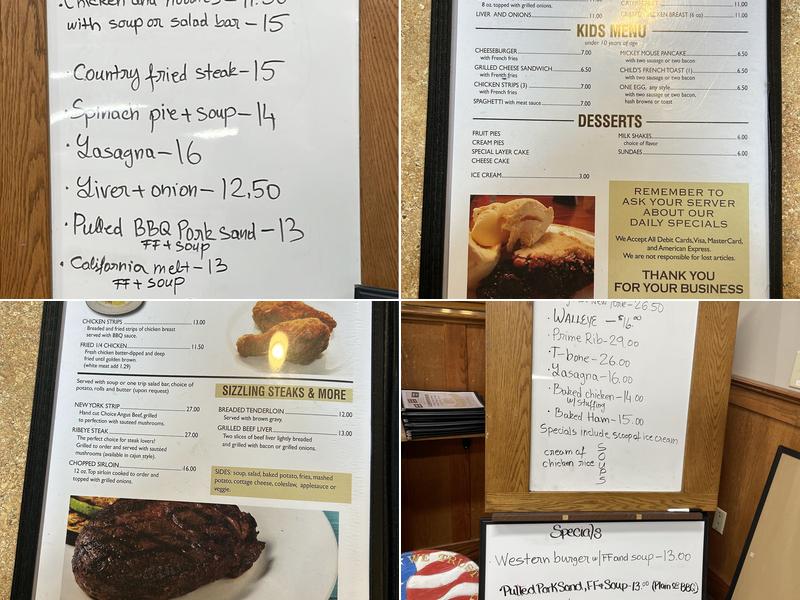 Chicken and Noodles - 11.50
with soup or salad bar - 15
• Country fried steak - 15
• Spinach pie + soup - 14
• Lasagna - 16
• Liver + onion - 12,50
• Pulled BBQ Pork Sand - 13
FF + soup
• California melt - 13
FF + soup
8 oz. topped with grilled onions.
LIVER AND ONIONS 11.00
11.00
CHICKEN BREAST (6 oz) 11.00
KIDS MENU
under 10 years of age
CHEESEBURGER 7.00
with French fries
GRILLED CHEESE SANDWICH 6.50
with French fries
CHICKEN STRIPS (3) 7.00
with French fries
SPAGHETTI with meat sauce 7.00
MICKEY MOUSE PANCAKE 6.50
with two sausage or two bacon
CHILD'S FRENCH TOAST (1) 6.50
with two sausage or two bacon
ONE EGG, any style 6.50
with two sausage or two bacon,
hash browns or toast
DESSERTS
FRUIT PIES
CREAM PIES
SPECIAL LAYER CAKE
CHEESE CAKE
ICE CREAM 3.00
MILK SHAKES 6.00
choice of flavor
SUNDAES 6.00
REMEMBER TO
ASK YOUR SERVER
ABOUT OUR
DAILY SPECIALS
We Accept All Debit Cards, Visa, MasterCard,
and American Express.
We are not responsible for lost articles.
THANK YOU
FOR YOUR BUSINESS
CHICKEN STRIPS 13.00
Breaded and fried strips of chicken breast
served with BBQ sauce.
FRIED 1/4 CHICKEN 11.50
Fresh chicken batter-dipped and deep
fried until golden brown.
(white meat add 1.29)
Served with soup or one trip salad bar, choice of
potato, rolls and butter (upon request)
NEW YORK STRIP 27.00
Hand cut Choice Angus Beef, grilled
to perfection with sauteed mushrooms.
RIBEYE STEAK 27.00
The perfect choice for steak lovers!
Grilled to order and served with sauteed
mushrooms (available in cajun style).
CHOPPED SIRLOIN 16.00
12 oz. Top sirloin cooked to order and
topped with grilled onions.
SIZZLING STEAKS & MORE
BREADED TENDERLOIN 12.00
Served with brown gravy.
GRILLED BEEF LIVER 13.00
Two slices of beef liver lightly breaded
and grilled with bacon or grilled onions.
SIDES: soup, salad, baked potato, fries, mashed
potato, cottage cheese, coleslaw, applesauce or
veggie.
26.50
• WALLEYE - $16.00
• Prime Rib - 29.00
• T-bone - 26.00
• Lasagna - 16.00
• Baked chicken - 14.00
w/ stuffing
• Baked Ham - 15.00
Specials include scoop of ice cream
cream of
chicken rice
SOUPS
Specials
• Western burger w/ FF and soup - 13.00
• Pulled Pork Sand, FF + Soup - 13.00 (Plain or BBQ)
WE TRUST